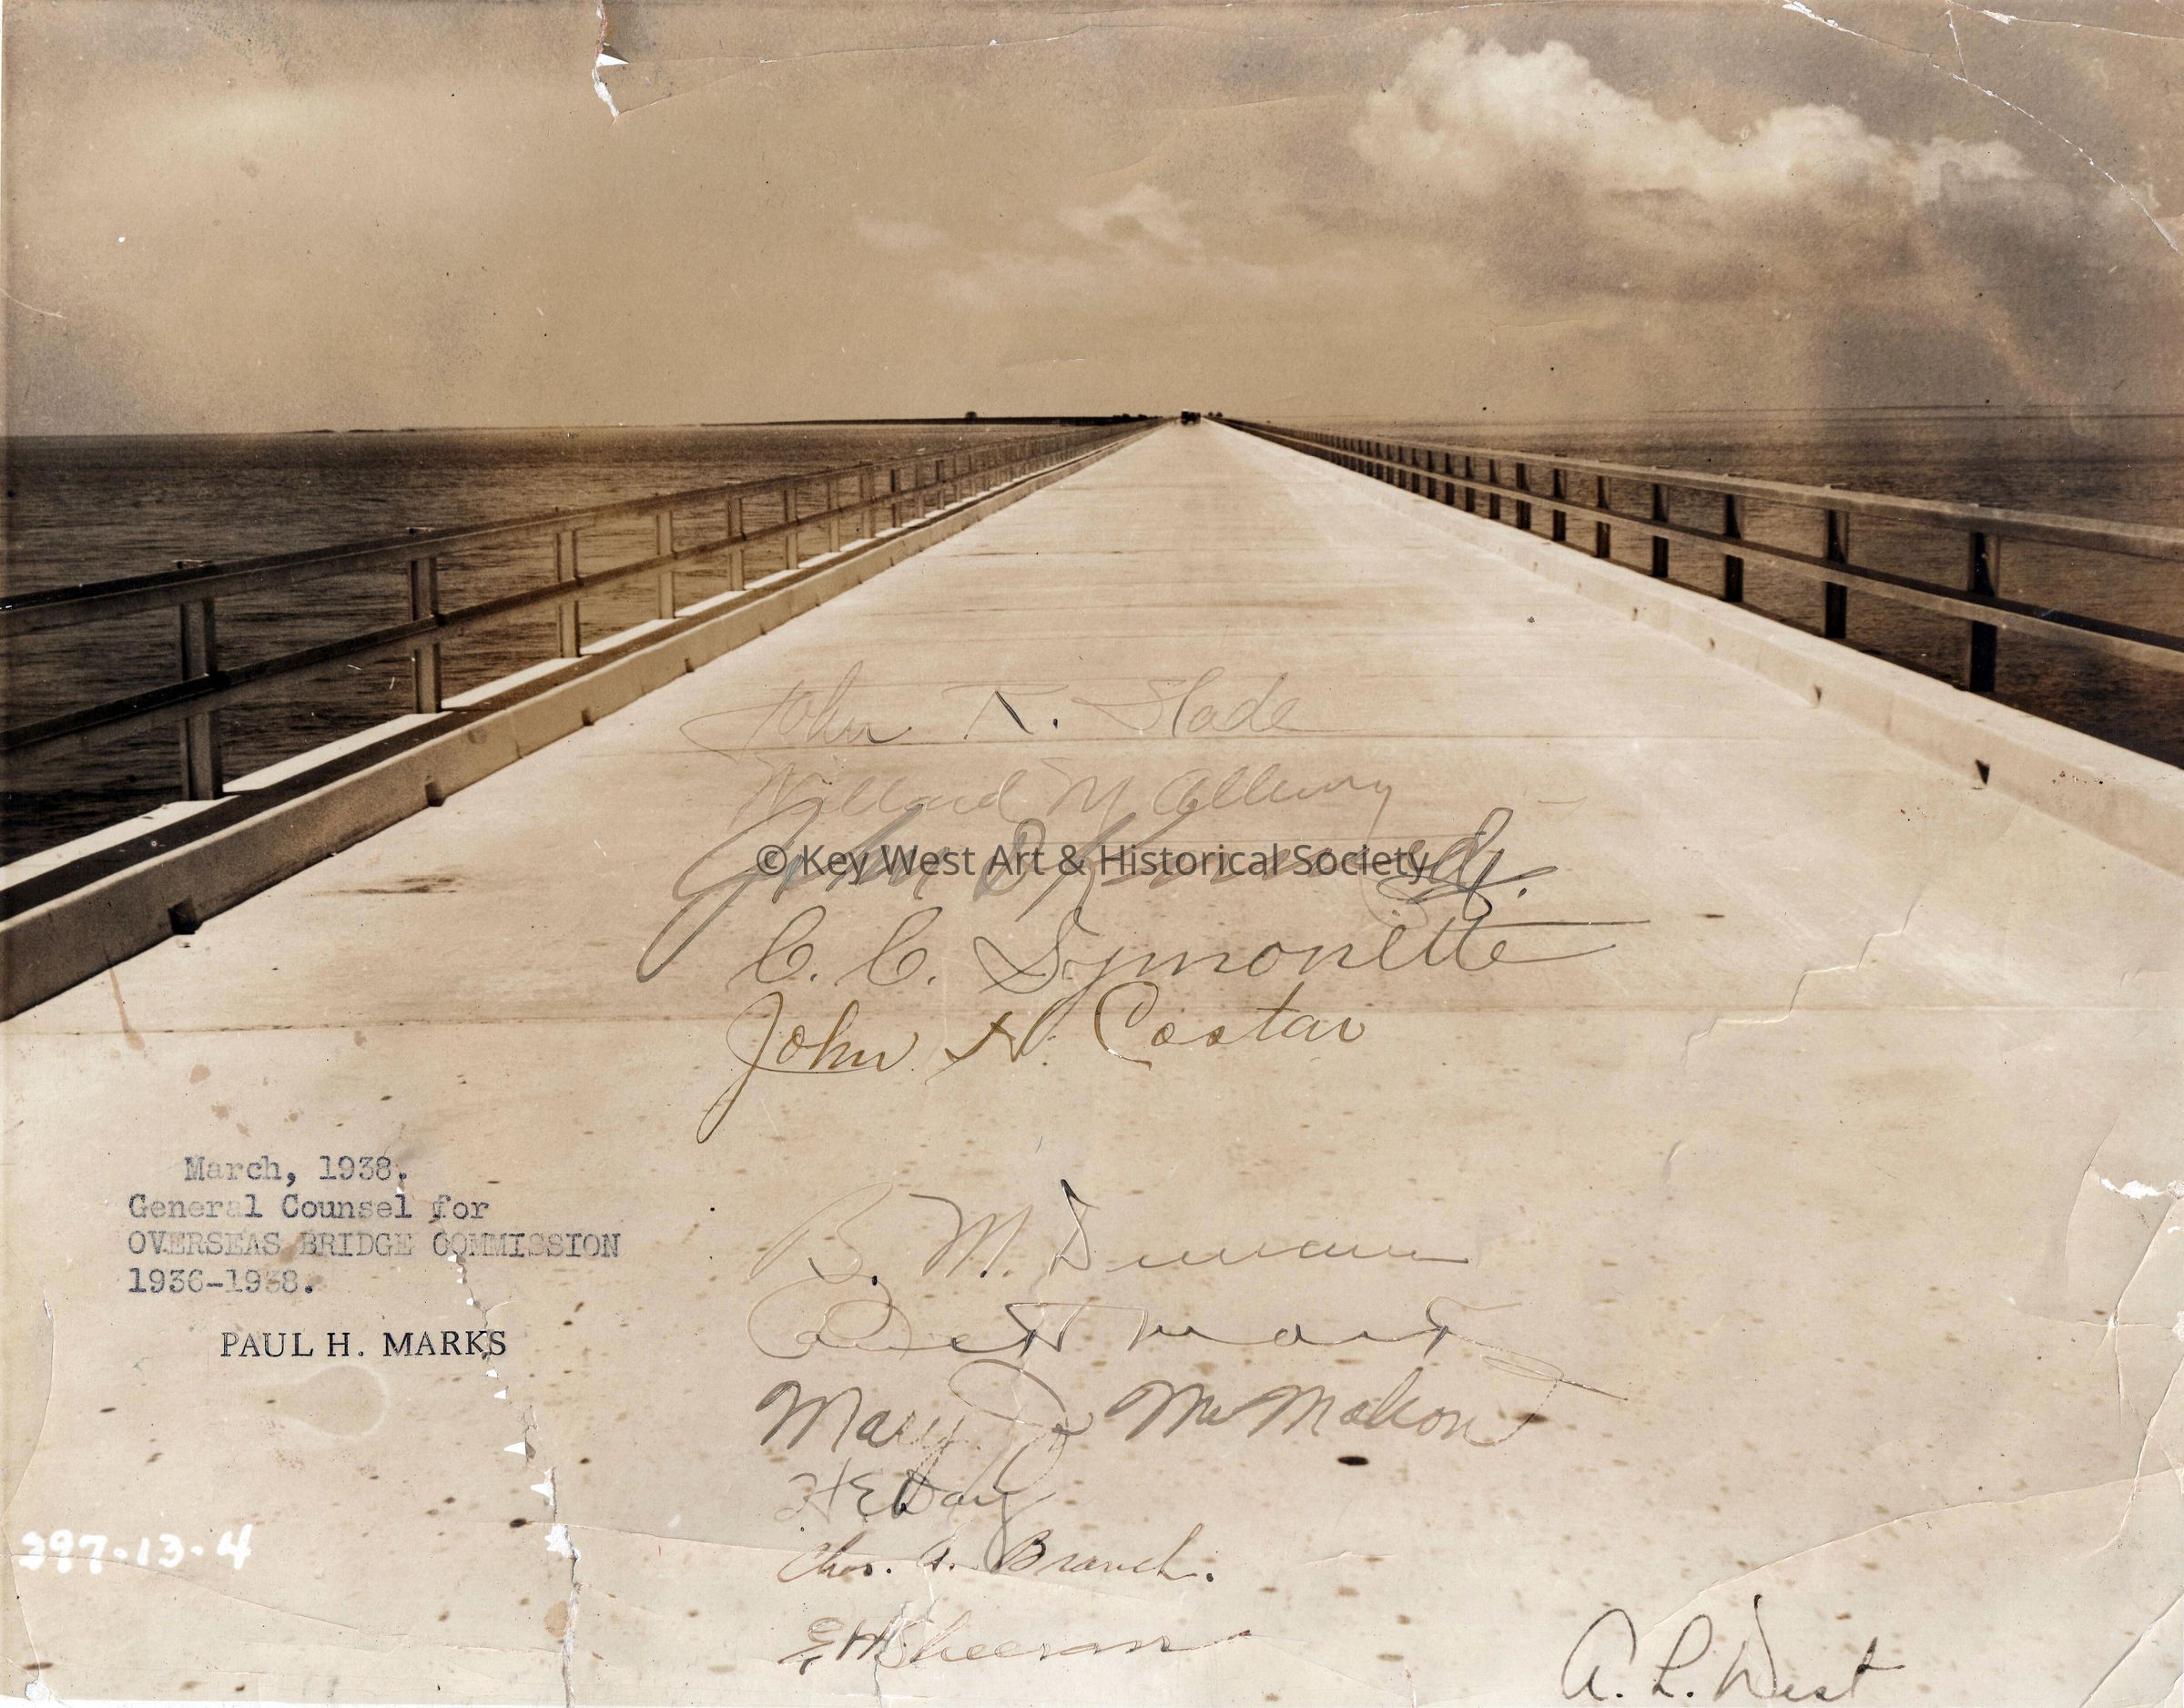 John K. Slade
Willard M Albury
© Key West Art & Historical Society
John D Kennedy.
C. C. Symonette
John N. Costar
March, 1938.
General Counsel for
OVERSEAS BRIDGE COMMISSION
1936-1938.
PAUL H. MARKS
B. M. Duncan
Mary J. McMahon
H E Day
Chas. A. Branch.
297-13-4
E. M. Sheeran
A. L. West